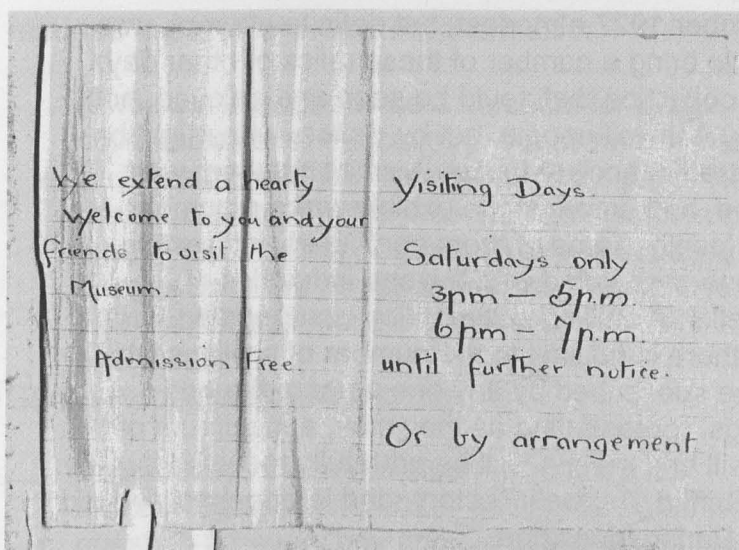 We extend a hearty
Welcome to you and your
friends to visit the
Museum.
Admission Free.
Visiting Days.
Saturdays only
3pm — 5p.m.
6pm — 7p.m.
until further notice.
Or by arrangement